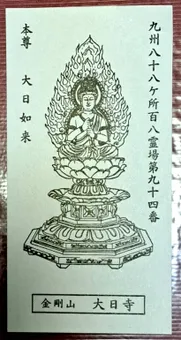 九州八十八ヶ所百八霊場第九十四番
本尊　大日如来
金剛山　大日寺